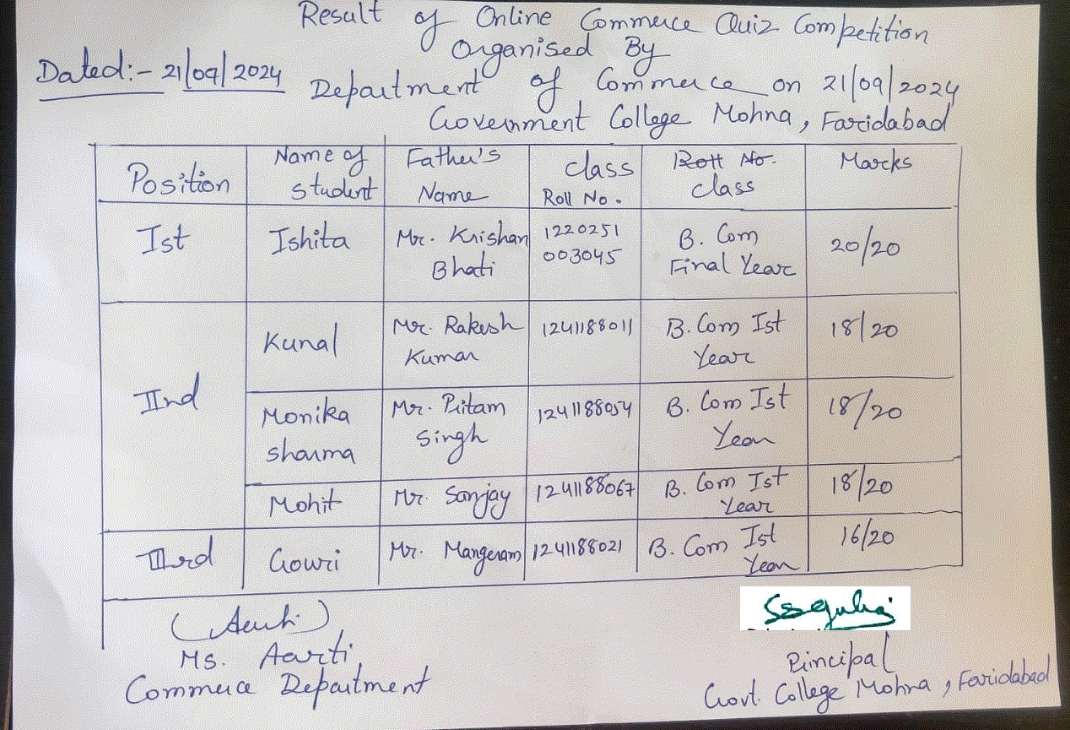 Result of Online Commerce Quiz Competition
Organised By
Dated:- 21/09/2024 Department of Commerce on 21/09/2024
Government College Mohna, Faridabad
Position Name of student Father's Name class Roll No. Roll No. class Marks
Ist Ishita Mr. Krishan Bhati 1220251003045 B. Com Final Year 20/20
IInd Kunal Mr. Rakesh Kumar 1241188011 B. Com Ist Year 18/20
Monika Sharma Mr. Pritam Singh 1241188054 B. Com Ist Year 18/20
Mohit Mr. Sanjay 1241188067 B. Com Ist Year 18/20
IIIrd Gouri Mr. Mangeram 1241188021 B. Com Ist Year 16/20
(Aarti)
Ms. Aarti
Commerce Department
Principal
Govt. College Mohna, Faridabad